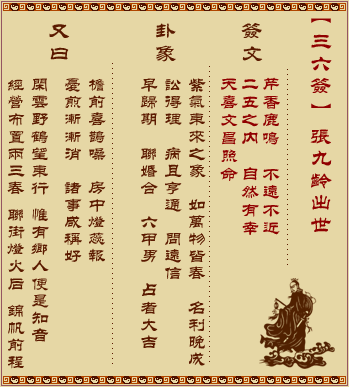 【三六簽】 張九齡出世
簽文
芹香鹿鳴 不遠不近
二五之內 自然有幸
天喜文昌照命
卦象
紫氣東來之象 如萬物皆春 名利晚成
訟得理 病且亨通 問遠信
早歸期 聯婚合 六甲男 占者大吉
又曰
檐前喜鵲噪 房中燈蕊報
憂煎漸漸消 諸事咸稱好
閑雲野鶴望東行 惟有鄉人便是知音
經營布置兩三春 聯街燈火后 錦帆前程